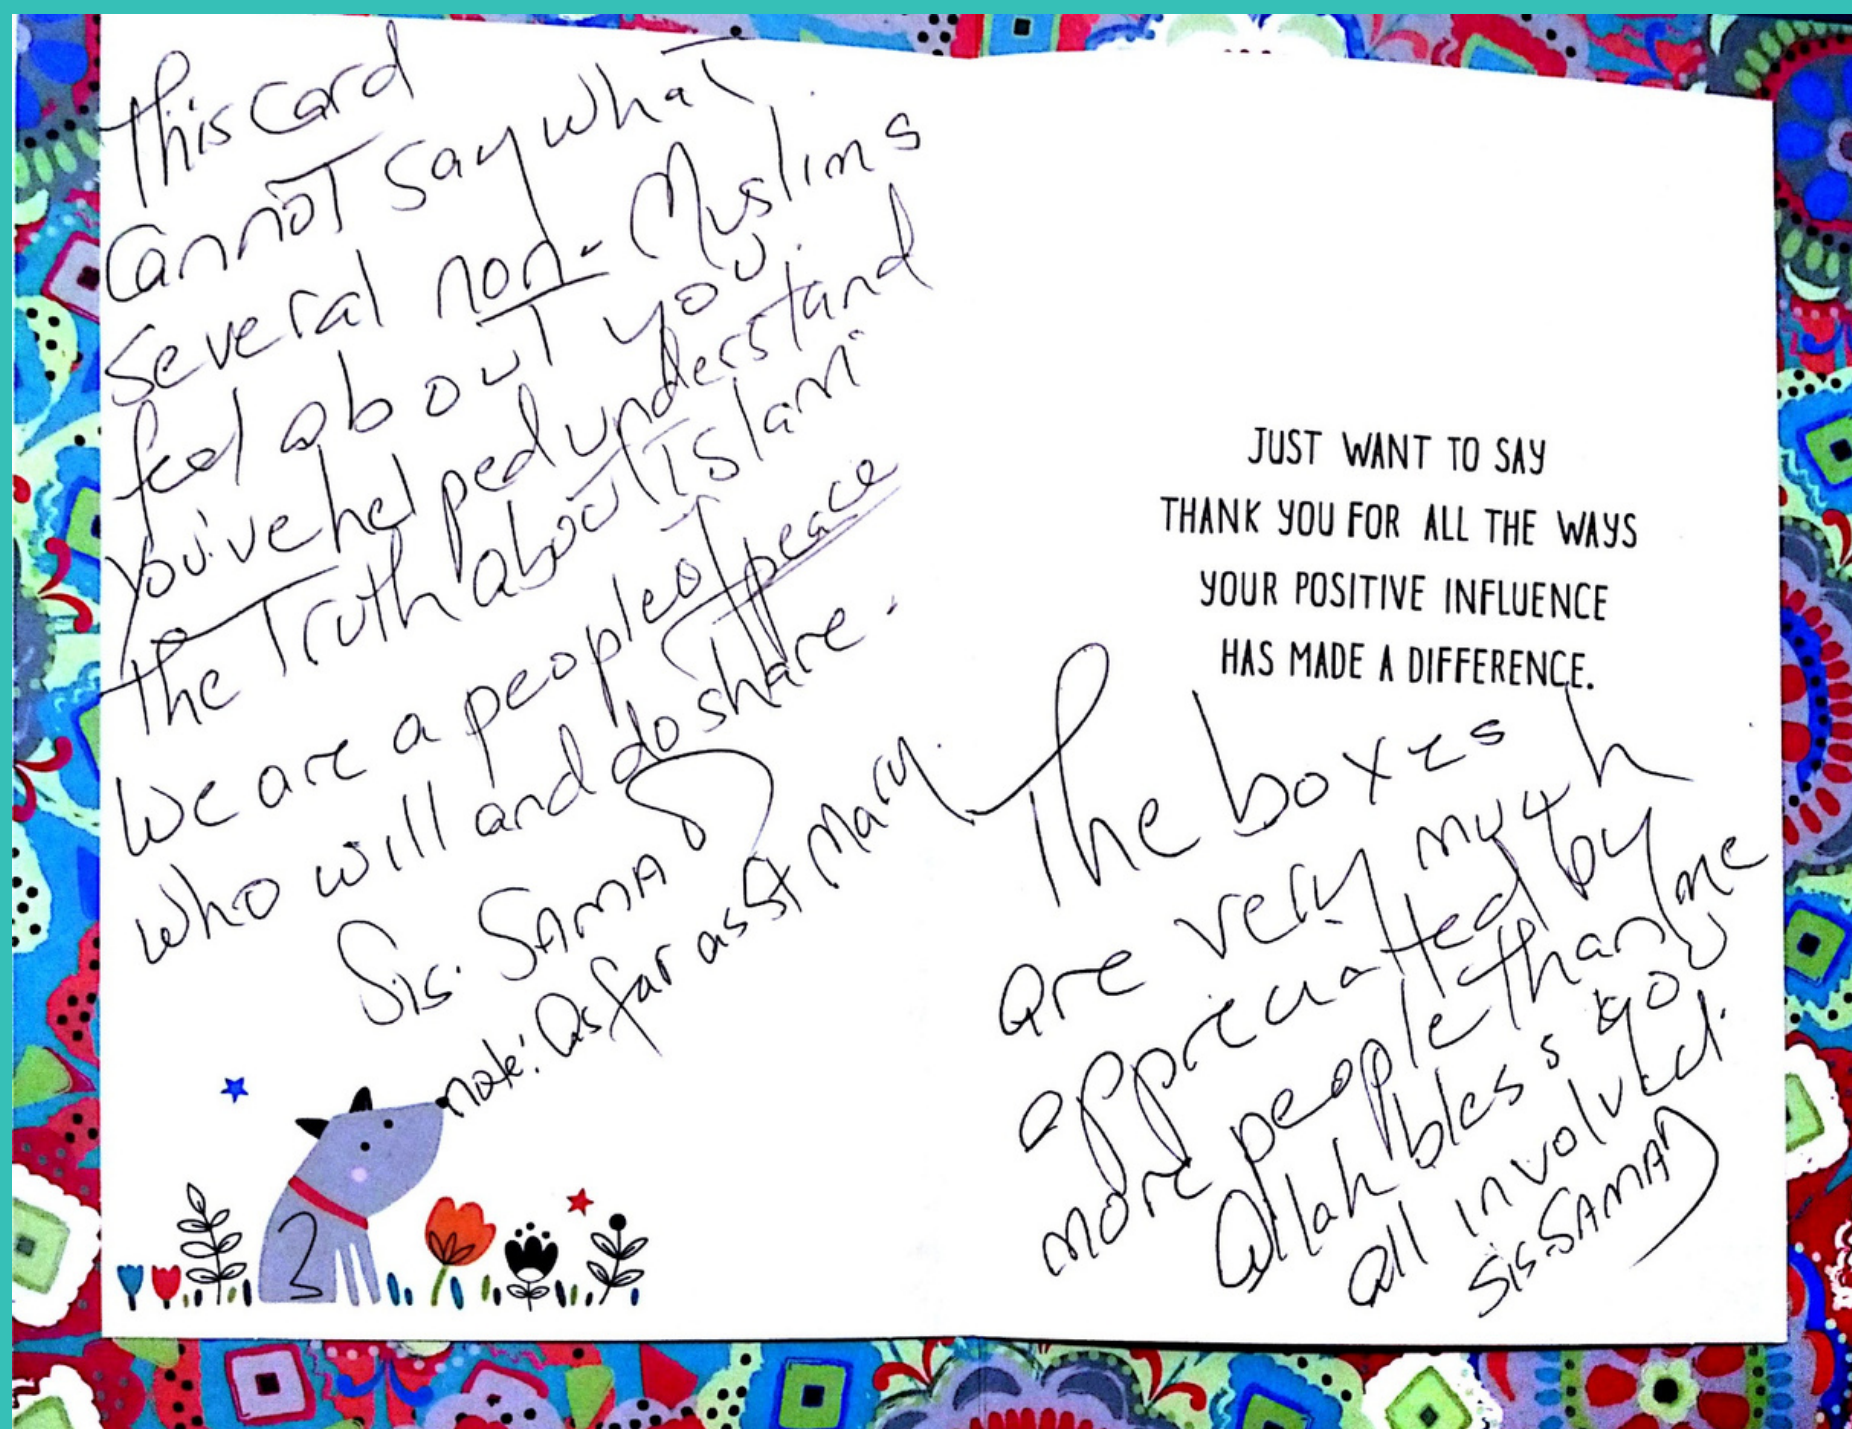 This Card
Cannot say what
several non-Muslims
feel about you.
You've helped understand
the Truth about Islam
We are a people of peace
who will and do share.
Sis. SAMAD
note: As far as St Mary.
JUST WANT TO SAY
THANK YOU FOR ALL THE WAYS
YOUR POSITIVE INFLUENCE
HAS MADE A DIFFERENCE.
The boxes
are very much
appreciated by
more people than me
Allah bless you
all involved.
Sis. SAMAD